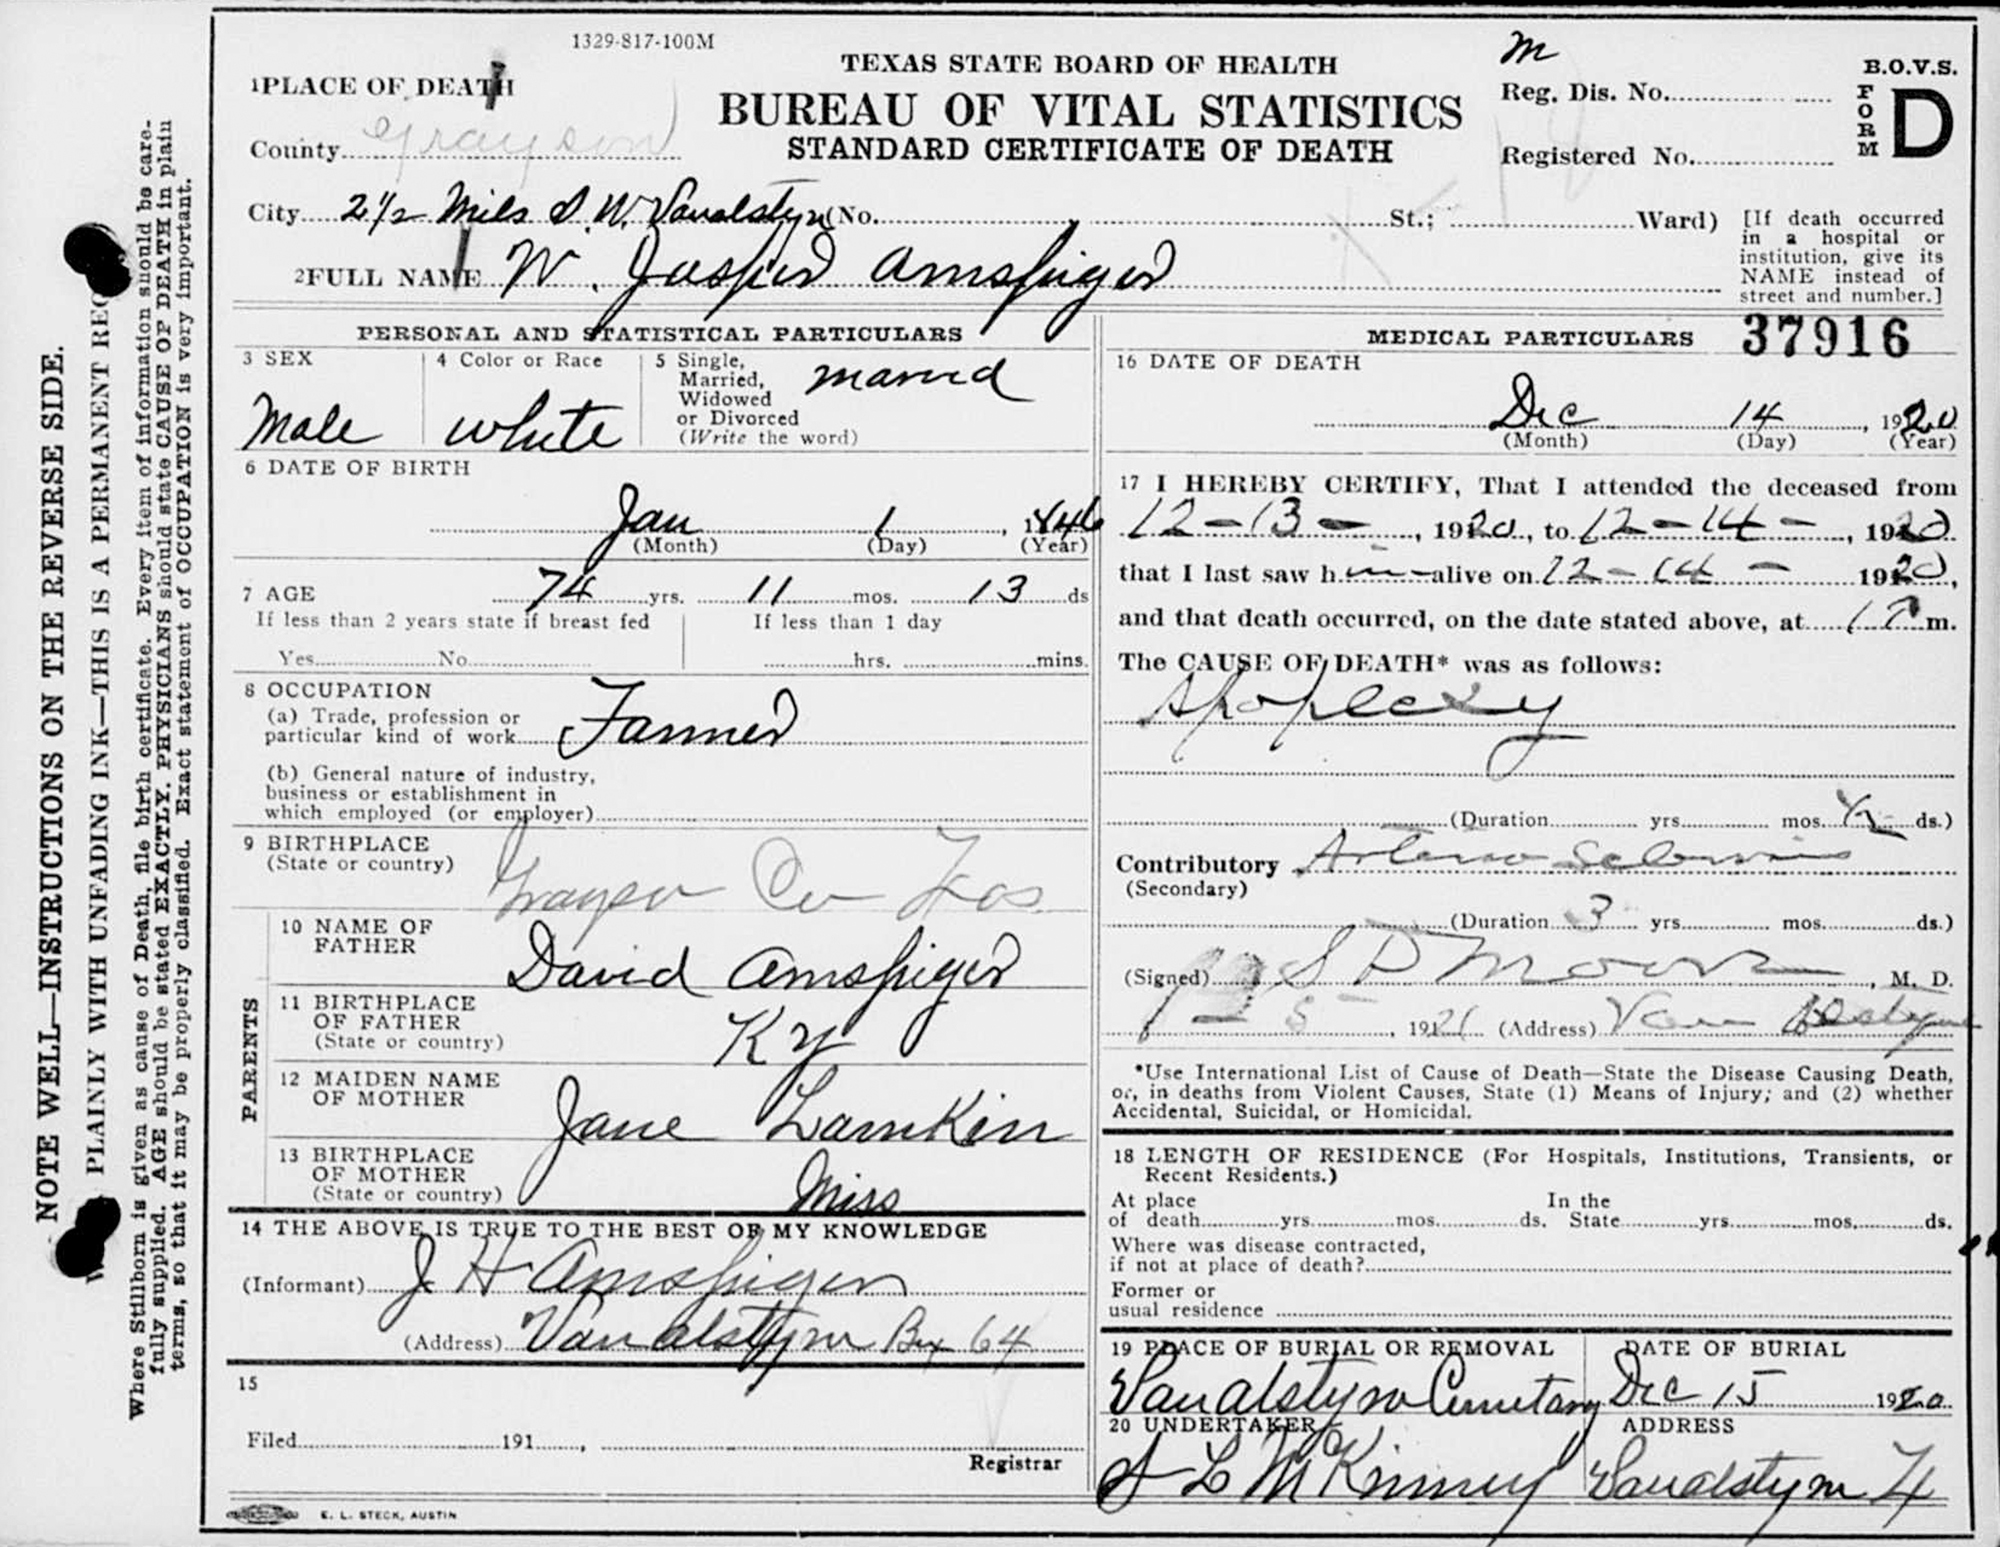 1329-817-100M
TEXAS STATE BOARD OF HEALTH
BUREAU OF VITAL STATISTICS
STANDARD CERTIFICATE OF DEATH
m
Reg. Dis. No.
Registered No.
B.O.V.S.
FORM D
1 PLACE OF DEATH
County Grayson
City 2 1/2 Mils S. W. Vanalstyn (No. St.; Ward)
[If death occurred
in a hospital or
institution, give its
NAME instead of
street and number.]
2 FULL NAME W. Jasper Amspiger
PERSONAL AND STATISTICAL PARTICULARS
3 SEX
Male
4 Color or Race
white
5 Single,
Married,
Widowed
or Divorced
(Write the word)
married
6 DATE OF BIRTH
Jan 1, 1846
(Month) (Day) (Year)
7 AGE 74 yrs. 11 mos. 13 ds
If less than 2 years state if breast fed
Yes No
If less than 1 day
hrs. mins.
8 OCCUPATION
(a) Trade, profession or
particular kind of work Farmer
(b) General nature of industry,
business or establishment in
which employed (or employer)
9 BIRTHPLACE
(State or country)
Grayson Co Texas
PARENTS
10 NAME OF
FATHER
David Amspiger
11 BIRTHPLACE
OF FATHER
(State or country)
Ky
12 MAIDEN NAME
OF MOTHER
Jane Lamkin
13 BIRTHPLACE
OF MOTHER
(State or country)
Miss
14 THE ABOVE IS TRUE TO THE BEST OF MY KNOWLEDGE
(Informant) J H Amspiger
(Address) Van alstyne Bx 64
15
Filed 191 ,
Registrar
E. L. STECK, AUSTIN
MEDICAL PARTICULARS
37916
16 DATE OF DEATH
Dec 14, 1920
(Month) (Day) (Year)
17 I HEREBY CERTIFY, That I attended the deceased from
12-13-, 1920, to 12-14-, 1920
that I last saw him alive on 12-14- 1920,
and that death occurred, on the date stated above, at 1 P m.
The CAUSE OF DEATH* was as follows:
Apoplexy
(Duration yrs mos 1/2 ds.)
Contributory Arterio Sclerosis
(Secondary)
(Duration 3 yrs mos ds.)
(Signed) S D Moore, M. D.
5, 1921 (Address) Van Alstyne
*Use International List of Cause of Death—State the Disease Causing Death,
or, in deaths from Violent Causes, State (1) Means of Injury; and (2) whether
Accidental, Suicidal, or Homicidal.
18 LENGTH OF RESIDENCE (For Hospitals, Institutions, Transients, or
Recent Residents.)
At place
of death yrs. mos. ds.
In the
State yrs. mos. ds.
Where was disease contracted,
if not at place of death?
Former or
usual residence
19 PLACE OF BURIAL OR REMOVAL
Vanalstyne Cemetary
DATE OF BURIAL
Dec 15 1920
20 UNDERTAKER
S L McKinney
ADDRESS
Vanalstyne
NOTE WELL—INSTRUCTIONS ON THE REVERSE SIDE.
PLAINLY WITH UNFADING INK—THIS IS A PERMANENT
Where Stilborn is given as cause of Death, file birth certificate. Every item of information should be care-
fully supplied. AGE should be stated EXACTLY. PHYSICIANS should state CAUSE OF DEATH in plain
terms, so that it may be properly classified. Exact statement of OCCUPATION is very important.